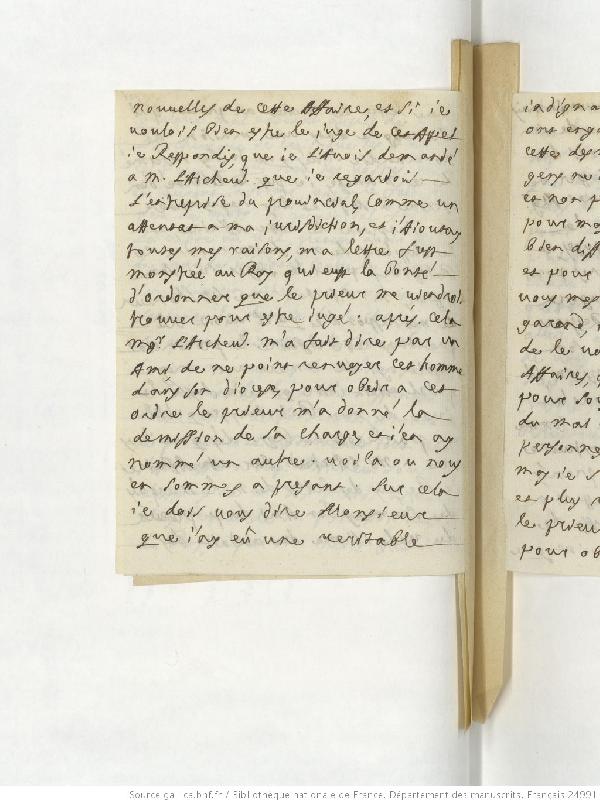 nouuelles de cette Affaire, et si ie
voulois bien estre le juge de cet Apel
ie Respondis, que ie l'auois demandé
a M. l'Archeu. que ie regardois
l'entreprise du prouincial, comme un
attentat a ma jurisdiction, et i'Aioutay
toutes mes raisons, ma lettre fust
monstrée au Roy qui eust la bonté
d'ordonner que le prieur me viendroit
trouuer pour estre iugé. apres cela
Mgr. l'Archeu. m'a fait dire par un
Ami de ne point renuoyer cet homme
dans son diocese, pour obeir a cet
ordre le prieur m'a donné la
demission de sa charge, et i'en ay
nommé un autre. voila ou nous
en sommes a presant. sur cela
ie dois vous dire Monsieur
que i'ay eû une veritable
indigna
ont enga
cette des
gens me
et non p
pour moy
bien diff
et pour
vous mes
garand,
de le vo
Affaires,
pour sou
du mal
personne
moy ie s
et plus
le prieur
pour ob
Source gallica.bnf.fr / Bibliothèque nationale de France. Département des manuscrits. Français 24991